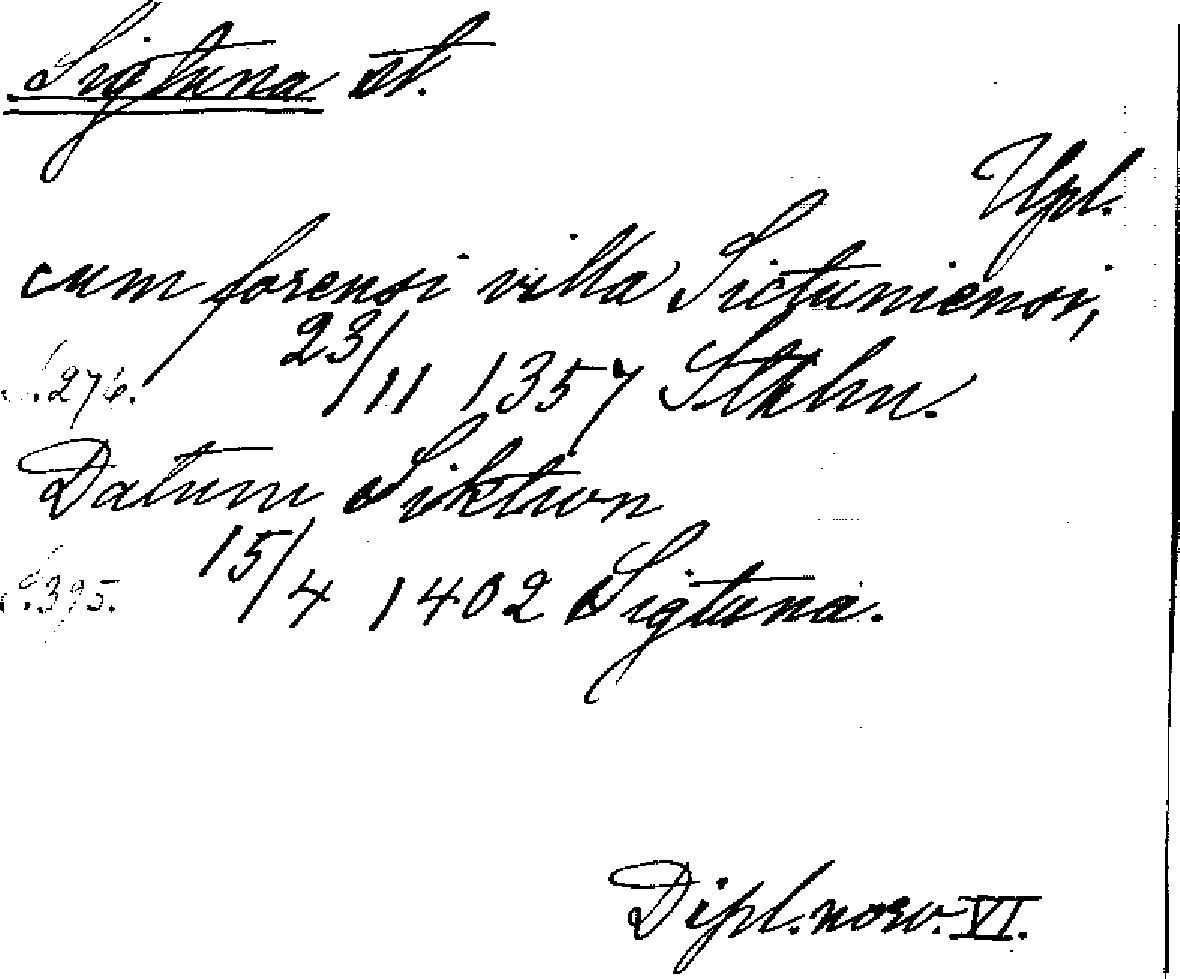 Sigtuna st.
Upl.
cum forensi villa Sictuniensi,
S. 276. 23/11 1357 Sthlm.
Datum Siktwn
S. 395. 15/4 1402 Sigtuna.
Dipl. norv. VI.